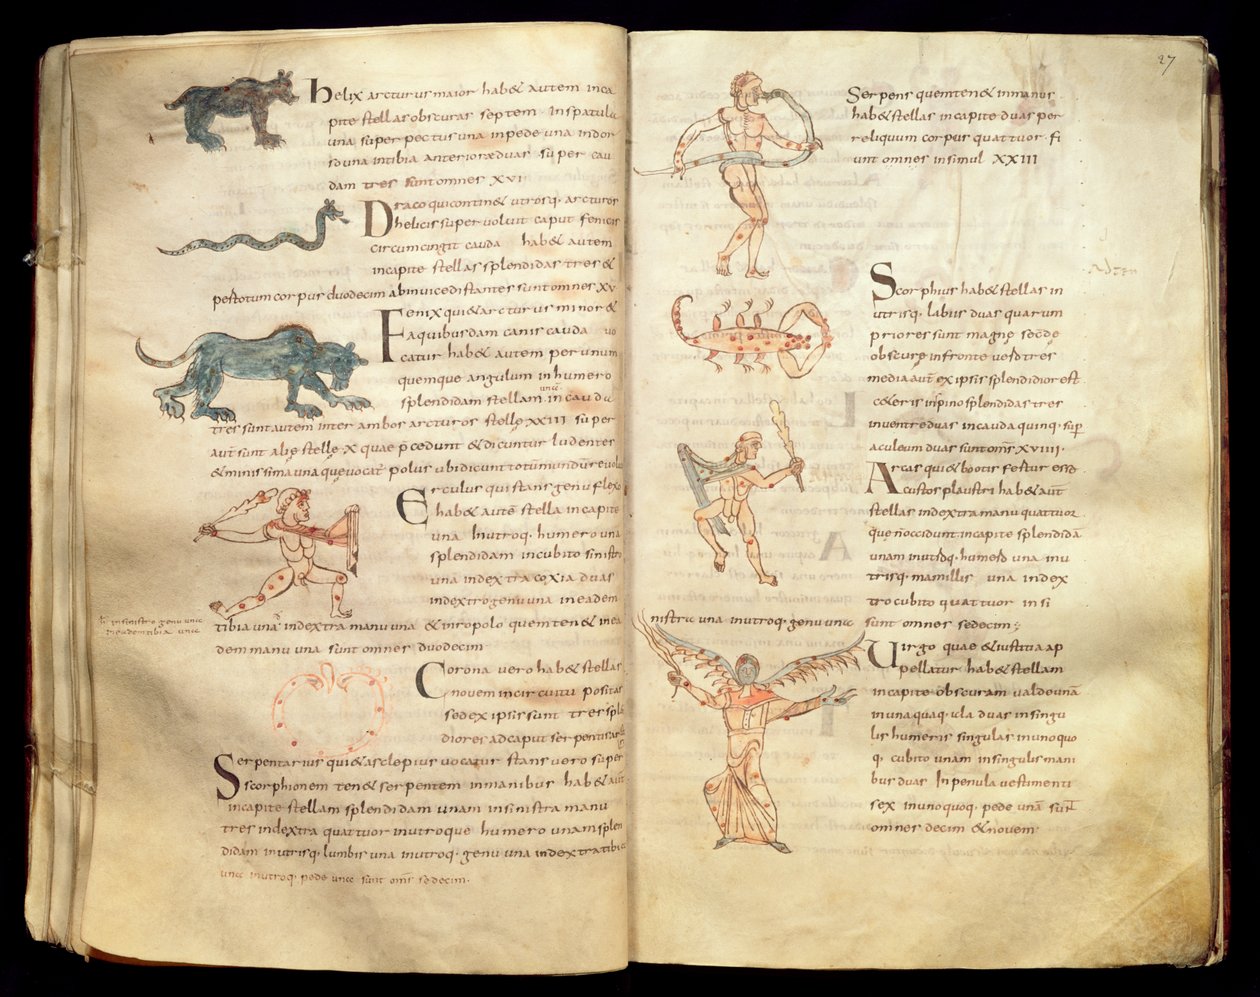 helix arcturus maior hab& autem inca
pite stellas obscuras septem · in spatula
una super pectus una in pede una in dor
so una in tibia anteriore duas super cau
dam tres sunt omnes XVI
Draco qui contin& utrosq· arcturos
helicis super voluit caput fenicis
circumcingit cauda hab& autem
in capite stellas splendidas tres &
per totum corpus duodecim abinvice distantes sunt omnes XV
Fenix qui & arcturus minor &
a quibusdam canis cauda vo
catur hab& autem per unum
quemque angulum in humero
splendidam stellam in cauda
tres sunt autem inter ambos arcturos stellę XXIII super
aut sunt alię stellę X quae p̄cedunt & dicuntur ludentes
& minissima una quę vocat polus ubi dicunt totū mundū revolui
Erculus qui stans genu flexo
hab& autē stella in capite
una In utroq· humero una
splendidam in cubito sinistro
una in dextra coxia duas
in dextro genu una in eadem
tibia unā in dextra manu una & in ropolo quem ten& in ea
dem manu una sunt omnes duodecim
in sinistro genu unā
in eadem tibia unā
Corona vero hab& stellas
novem in circuitu positas
sed ex ipsis sunt tres splē
diores ad caput serpentis
Serpentarius qui & asclepius vocatur stans vero super
scorphionem ten& serpentem in manibus hab& aut
in capite stellam splendidam unam in sinistra manu
tres in dextra quattuor in utroque humero unam splen
didam in utrisq· lumbis una in utroq· genu una in dextra tibia
unā in utroq· pede unā sunt omēs sedecim·
27
Serpens quem ten& in manus
hab& stellas in capite duas per
reliquum corpus quattuor · fi
unt omnes in simul XXIII
Scorphius hab& stellas in
utrisq· labiis duas quarum
priores sunt magnę secūde
obscurę in fronte vero tres
media aut ex ipsis splendidior est
c&eris in spino splendidas tres
in ventre duas in cauda quinq· sup
aculeum duas sunt omēs XVIIII·
Arcas qui & bootis fertur esse
custos plaustri hab& aut
stellas in dextra manu quattuor
quę nō occidunt in capite splendidā
unam in utrisq· humeris una in u
trisq· mamillis una in dex
tro cubito quattuor in si
nistro una in utroq· genu unā sunt omnes sedecim;
Virgo quae & iustitia ap
pellatur hab& stellam
in capite obscuram valde unā
in unaquaq· ala duas in singu
lis humeris singulas in uno quo
q· cubito unam in singulis mani
bus duas In penula vestimenti
sex in uno quoq· pede unā sunt
omnes decim & novem